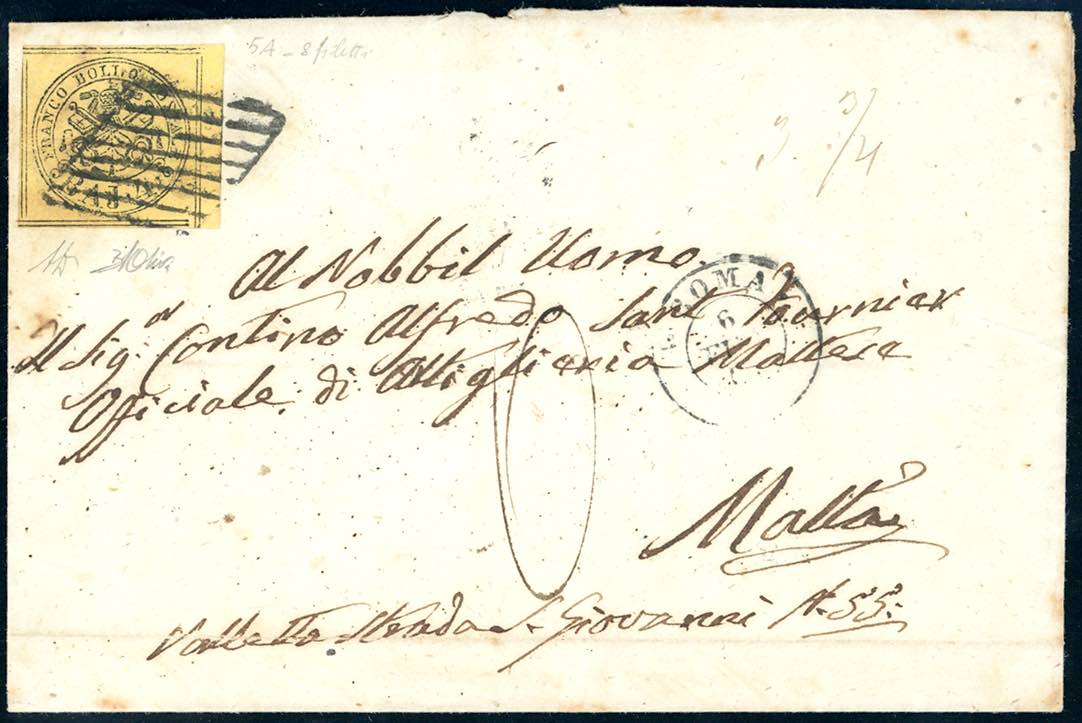 5A - 8 filetti
FRANCO BOLLO POSTALE
BAJ. 4
3 3/4
Al Nobbil Uomo
Il Sig.or Contino Alfredo Sant Fournier
Officiale di Attiglieria Maltese
ROMA
6
Malta
Valletta Strada S. Giovanni N. 55.